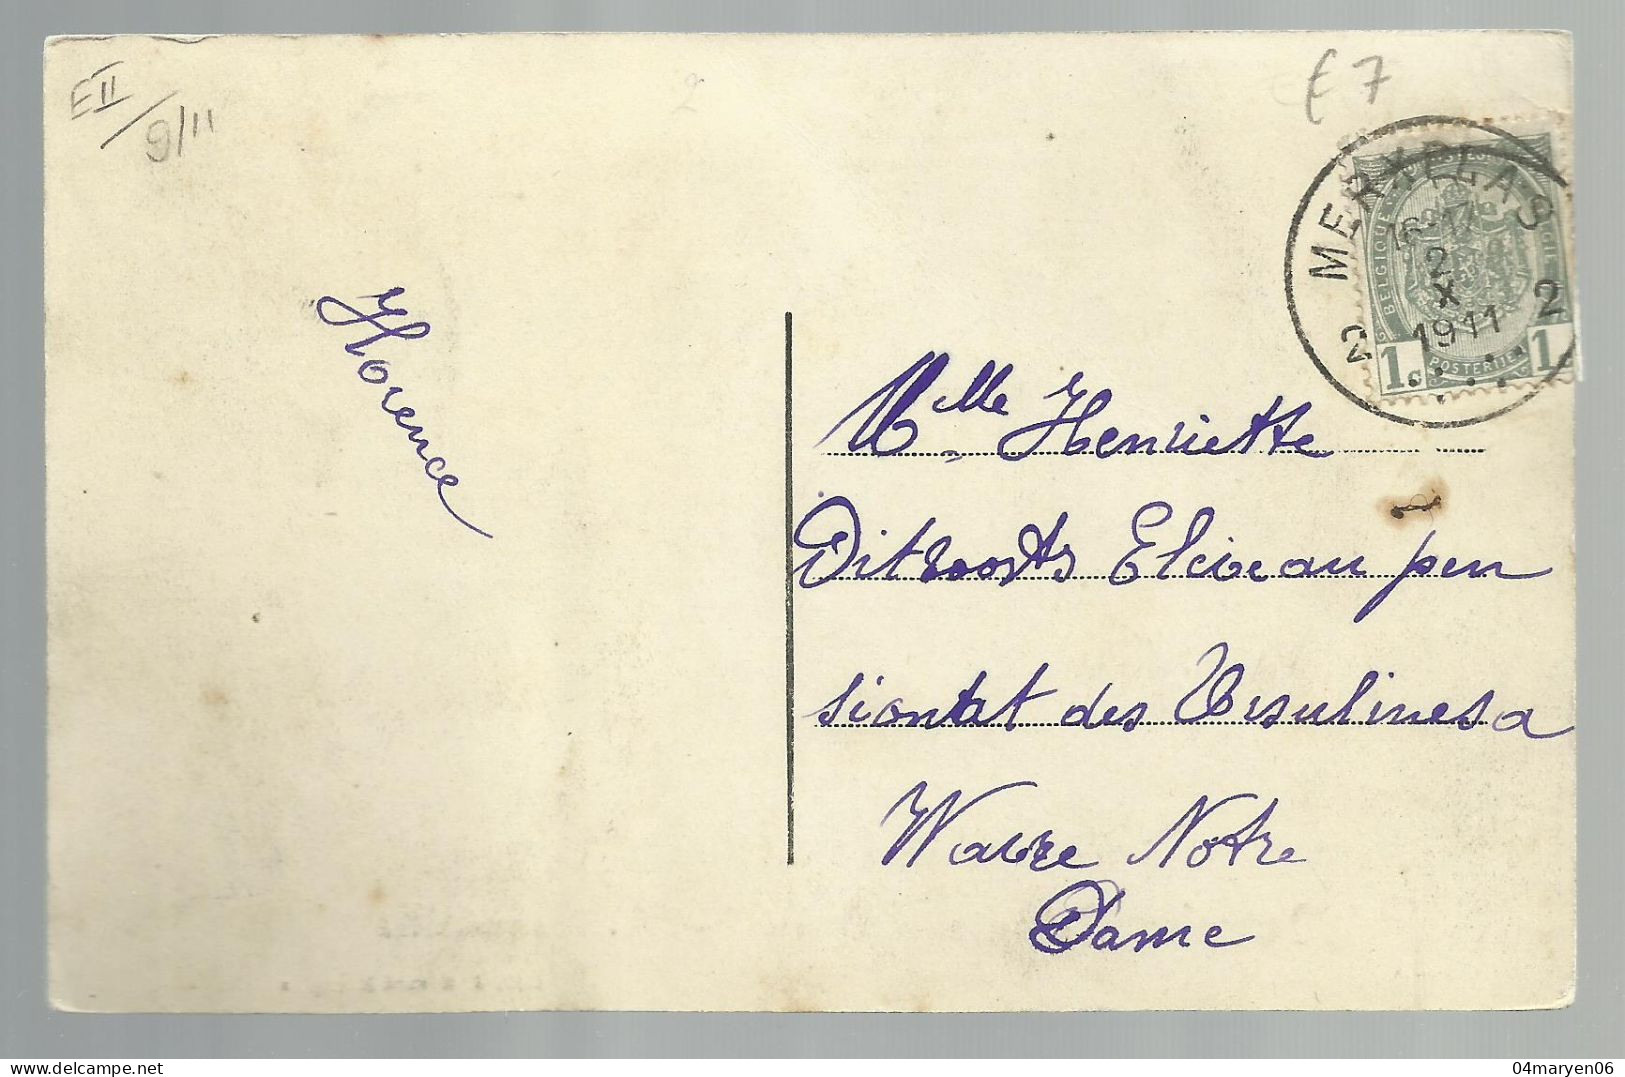 EII/9/11
2
€ 7
MERXPLAS
16-17
2
X
1911
2 2
BELGIQUE
POSTERIJEN
1c 1
Florence
Mlle Henriette
Ditroosts Elève au pen
siontat des Ursulines a
Wavre Notre
Dame
04maryen06